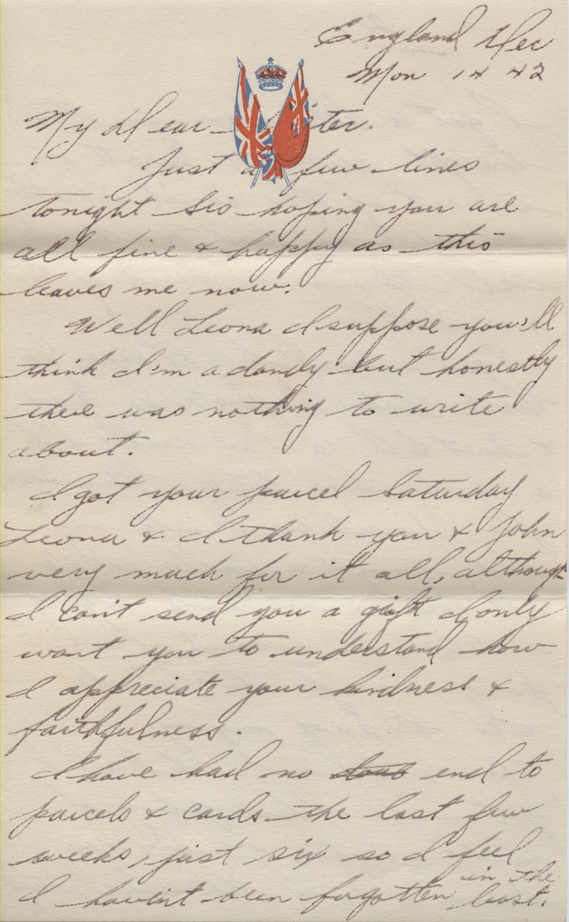 England Dec
Mon 14 42
My Dear Sister.
Just a few lines
tonight Sis hoping you are
all fine & happy as this
leaves me now.
Well Leona I suppose you'll
think I'm a dandy but honestly
there was nothing to write
about.
I got your parcel Saturday
Leona & I thank you & John
very much for it all, although
I can't send you a gift I only
want you to understand how
I appreciate your kindness &
faithfulness.
I have had no end to
parcels & cards the last few
weeks, just six so I feel
I haven't been forgotten in the
least.